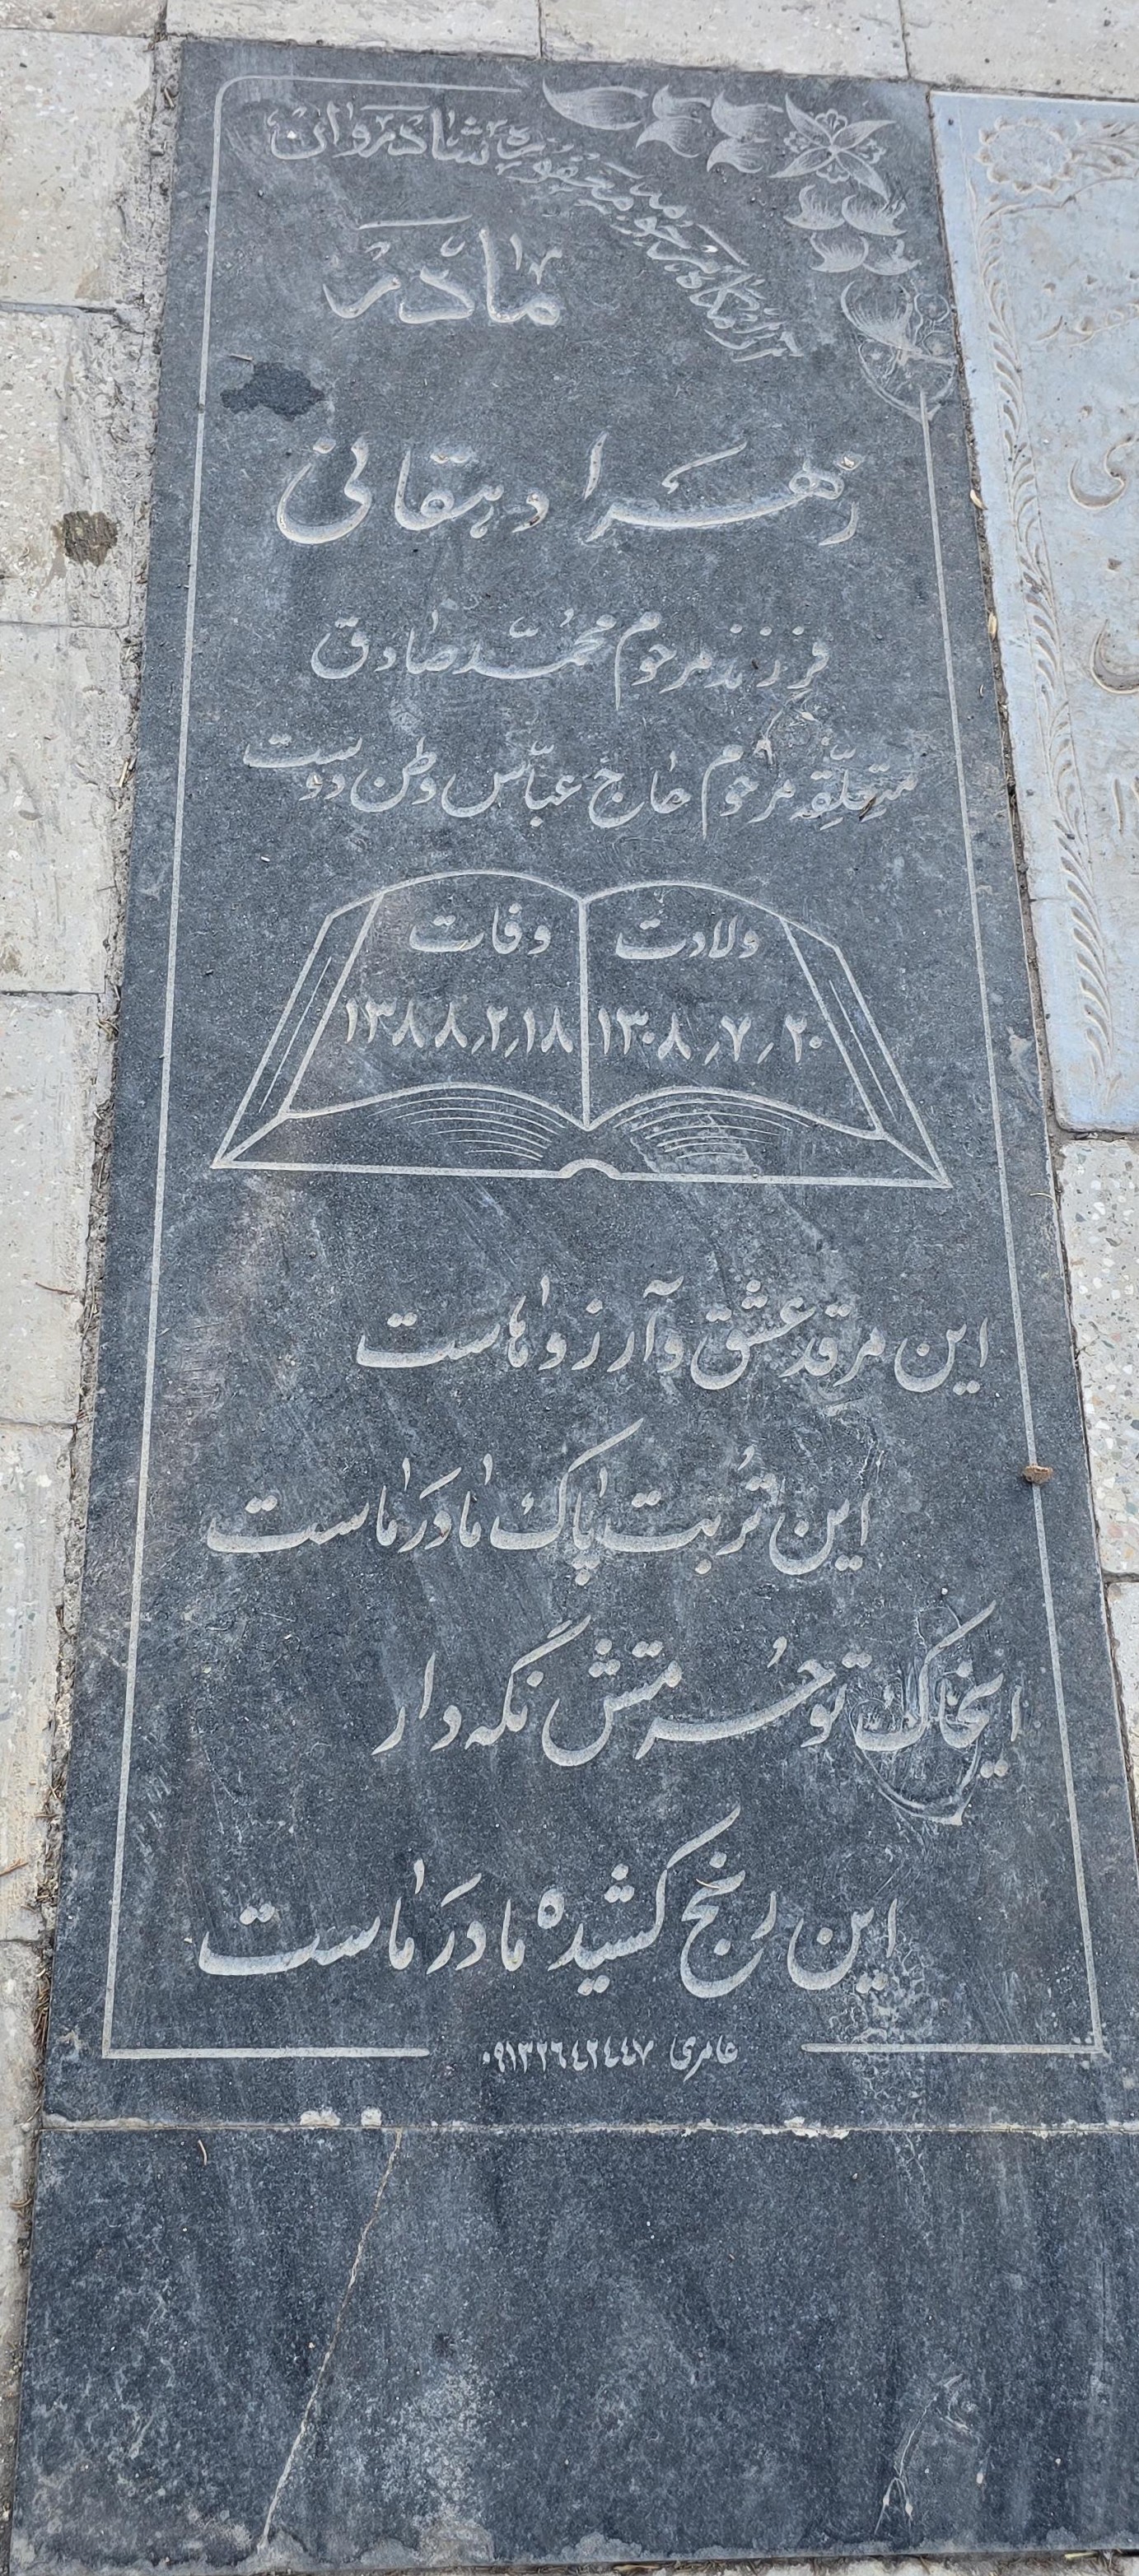 آرامگاه مرحومه مغفوره شادروان
مادر
زهرا دهقانی
فرزند مرحوم محمد صادق
متعلقه مرحوم حاج عباس وطن دوست
ولادت
۱۳۰۸٫۷٫۲۰
وفات
۱۳۸۸٫۲٫۱۸
این مرقد عشق و آرزوهاست
این تربت پاک مادر ماست
ایخاک تو حرمتش نگه دار
این رنج کشیده مادر ماست
عامری ۰۹۱۳۲۶۴۲۴۴۷